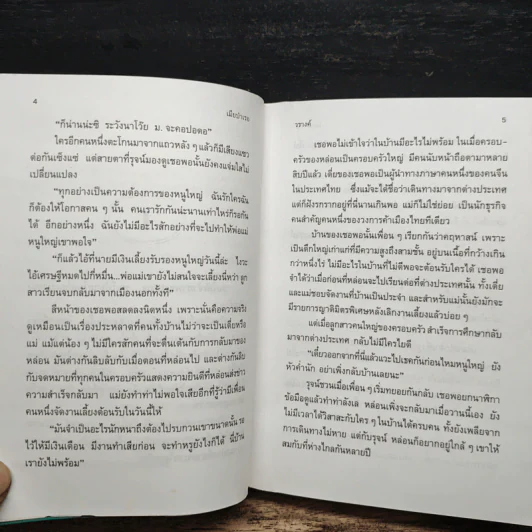 4
เมียบำเรอ
"ก็น่านน่ะซิ ระวังนาโว้ย ม. จะคอปอดอ"
ใครอีกคนหนึ่งตะโกนมาจากแถวหลัง ๆ แล้วก็มีเสียงแซว
ต่อกันเซ็งแซ่ แต่สายตาที่รุจน์มองดูเธอพอนั้นยังคงแจ่มใสไม่
เปลี่ยนแปลง
"ทุกอย่างเป็นความต้องการของหนูใหญ่ ฉันรักใครฉัน
ก็ต้องให้โอกาสคน ๆ นั้น คนเรารักกันน่ะนานเท่าไหร่ก็รอกัน
ได้ อีกอย่างหนึ่ง ฉันยังไม่มีอะไรสักอย่างที่จะไปทำให้พ่อแม่
หนูใหญ่เขาพอใจ"
"ก็แล้วไอ้ที่นายมีเงินเลี้ยงรับรองหนูใหญ่วันนี้ล่ะ ไงวะ
ไอ้เศรษฐีหมดไปกี่หมื่น...พ่อแม่เขายังไม่สนใจจะเลี้ยงนี่หว่า ลูก
สาวเรียนจบกลับมาจากเมืองนอกทั้งที"
สีหน้าของเธอพอสลดลงนิดหนึ่ง เพราะนั่นคือความจริง
ดูเหมือนเป็นเรื่องประหลาดที่คนทั้งบ้านไม่ว่าจะเป็นเตี่ยหรือ
แม่ แม้แต่น้อง ๆ ไม่มีใครสักคนที่จะตื่นเต้นกับการกลับมาของ
หล่อน มันต่างกันลิบลับกับเมื่อตอนที่หล่อนไป และต่างกันลับ
กับจดหมายที่ทุกคนในครอบครัวแสดงความยินดีที่หล่อนส่งข่าว
ความสำเร็จกลับมา แม่ยังทำท่าไม่พอใจเสียอีกที่รู้ว่ามีเพื่อน
คนหนึ่งจัดงานเลี้ยงต้อนรับในวันนี้ให้
"มันจำเป็นอะไรนักหนาถึงต้องไปรบกวนเขาขนาดนั้น รอ
ไว้ให้มีเงินเดือน มีงานทำเสียก่อน จะทำหรูยังไงก็ได้ นี่บ้าน
เรายังไม่พร้อม"
วรางค์
5
เธอพอไม่เข้าใจว่าในบ้านมีอะไรไม่พร้อม ในเมื่อครอบ-
ครัวของหล่อนเป็นครอบครัวใหญ่ มีคนนับหน้าถือตามาหลาย
สิบปีแล้ว เตี่ยของเธอเป็นผู้นำทางภาษาคนหนึ่งของคนจีน
ในประเทศไทย ซึ่งแม้จะได้ชื่อว่าเดินทางมาจากต่างประเทศ
แต่ก็ฝังรากอยู่ที่นี่นานเกินพอ แม่ก็ไม่ใช่ย่อย เป็นนักธุรกิจ
คนสำคัญคนหนึ่งของวงการค้าเมืองไทยทีเดียว
บ้านของเธอพอนั้นเพื่อน ๆ เรียกกันว่าคฤหาสน์ เพราะ
เป็นตึกใหญ่เก่าแก่ที่มีความสูงถึงสามชั้น อยู่บนเนื้อที่กว้างเกิน
กว่าหนึ่งไร่ ไม่มีอะไรในบ้านที่ไม่ดีพอจะต้อนรับใครได้ เธอพอ
จำได้ว่าเมื่อก่อนที่หล่อนจะไปเรียนต่อที่ต่างประเทศนั้น ทั้งเตี่ย
และแม่ชอบจัดงานที่บ้านเป็นประจำ และสำหรับแม่นั้นยังมักจะ
มีรายการญาติมิตรพิเศษหลังเลิกงานเลี้ยงแล้วบ่อย ๆ
แต่เมื่อลูกสาวคนใหญ่ของครอบครัว สำเร็จการศึกษากลับ
มาจากต่างประเทศ กลับไม่มีใครไยดี
"เดี๋ยวออกจากที่นี่แล้วแวะไปเธคกันก่อนไหมหนูใหญ่ ยัง
หัวค่ำนัก อย่าเพิ่งกลับบ้านเลยนะ"
รุจน์ชวนเมื่อเพื่อน ๆ เริ่มทยอยกันกลับ เธอพอยกนาฬิกา
ข้อมือดูแล้วทำท่าลังเล หล่อนเพิ่งจะกลับมาเมื่อวานนี้เอง ยัง
ไม่มีเวลาได้วิสาสะกับใคร ๆ ในบ้านได้ครบคน ทั้งยังเพลียจาก
การเดินทางไม่หาย แต่กับรุจน์ หล่อนก็อยากอยู่ใกล้ ๆ เขาให้
สมกับที่ห่างไกลกันหลายปี